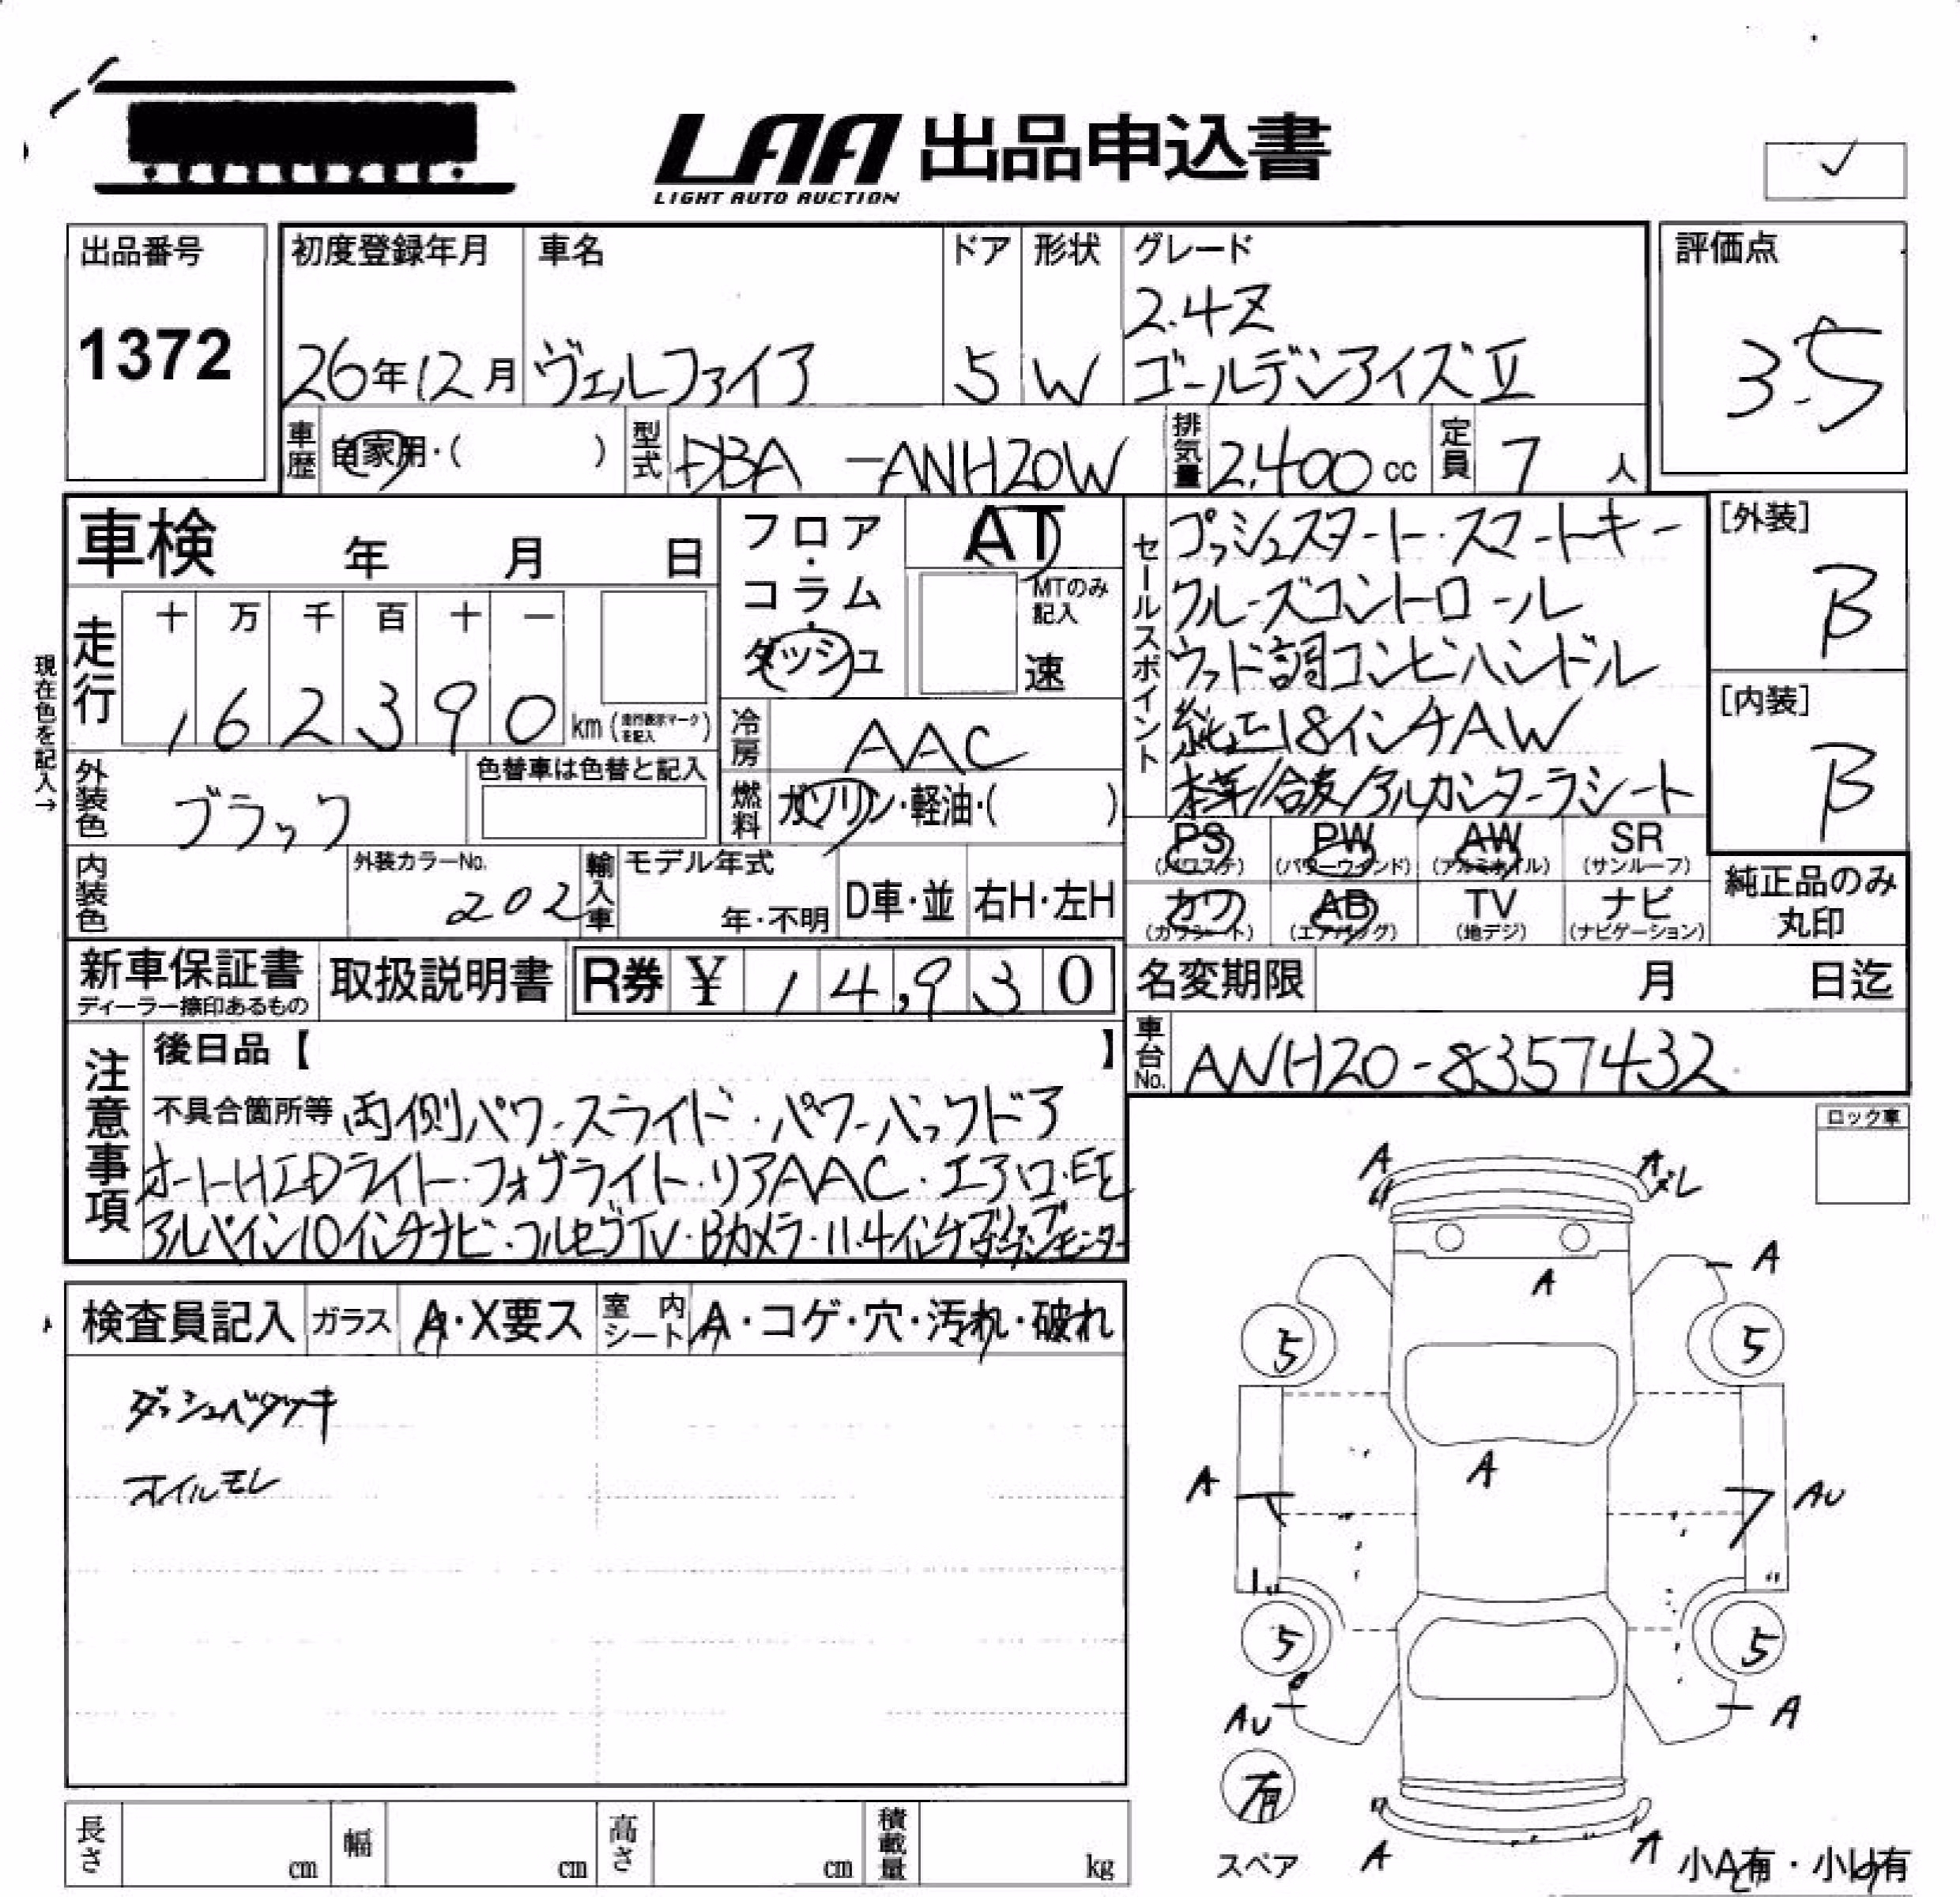 LAA 出品申込書
LIGHT AUTO AUCTION
✓
出品番号
1372
初度登録年月
26年12月
車名
ヴェルファイア
ドア
5
形状
W
グレード
2.4Z
ゴールデンアイズⅡ
評価点
3.5
車歴 自家用・( )
型式 DBA -ANH20W
排気量 2,400 cc
定員 7 人
車検 年 月 日
フロア・コラム・ダッシュ
AT
MTのみ記入
速
セールスポイント
プッシュスタート・スマートキー
クルーズコントロール
ウッド調コンビハンドル
純正18インチAW
本革/合皮/アルカンターラシート
[外装]
B
[内装]
B
現在色を記入→
走行
十 万 千 百 十 一
1 6 2 3 9 0 km (走行表示マークを記入)
冷房 AAC
外装色 ブラック
色替車は色替と記入
燃料 ガソリン・軽油・( )
PS (パワステ)
PW (パワーウインド)
AW (アルミホイル)
SR (サンルーフ)
カワ (カワシート)
AB (エアバッグ)
TV (地デジ)
ナビ (ナビゲーション)
純正品のみ丸印
内装色
外装カラーNo.
202
輸入車
モデル年式
年・不明
D車・並
右H・左H
新車保証書
ディーラー捺印あるもの
取扱説明書
R券 ¥ 14,930
名変期限 月 日迄
車台No. ANH20-8357432
注意事項
後日品【 】
不具合箇所等 両側パワースライド・パワーバックドア
オートHIDライト・フォグライト・リアAAC・エアロ・EtE
アルパイン10インチナビ・フルセグTV・Bカメラ・11.4インチダウンモニター
ロック車
検査員記入
ガラス A・X要ス
室内シート A・コゲ・穴・汚れ・破れ
ダッシュベタツキ
オイルモレ
A
A
ズレ
A
A
5
5
A
A
AU
5
5
AU
A
有
スペア
A
A
小A有・小U有
長さ cm
幅 cm
高さ cm
積載量 kg